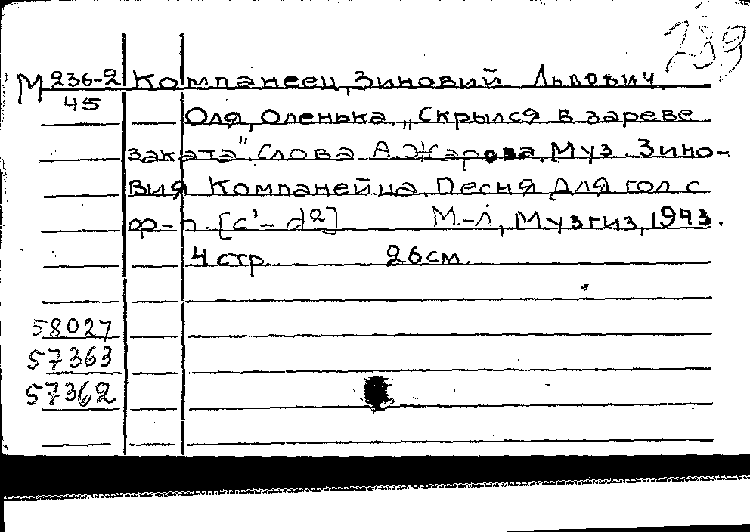 289
М 236-2 Компанеец, Зиновий Львович.
45
Оля, Оленька. „Скрылся в зареве
заката". Слова А. Жарова, Муз. Зино-
вия Компанейца. Песня для гол с
ф-п. [c¹ - d²] М-Л, Музгиз, 1943.
4 стр 26 см.
58027
57363
57362